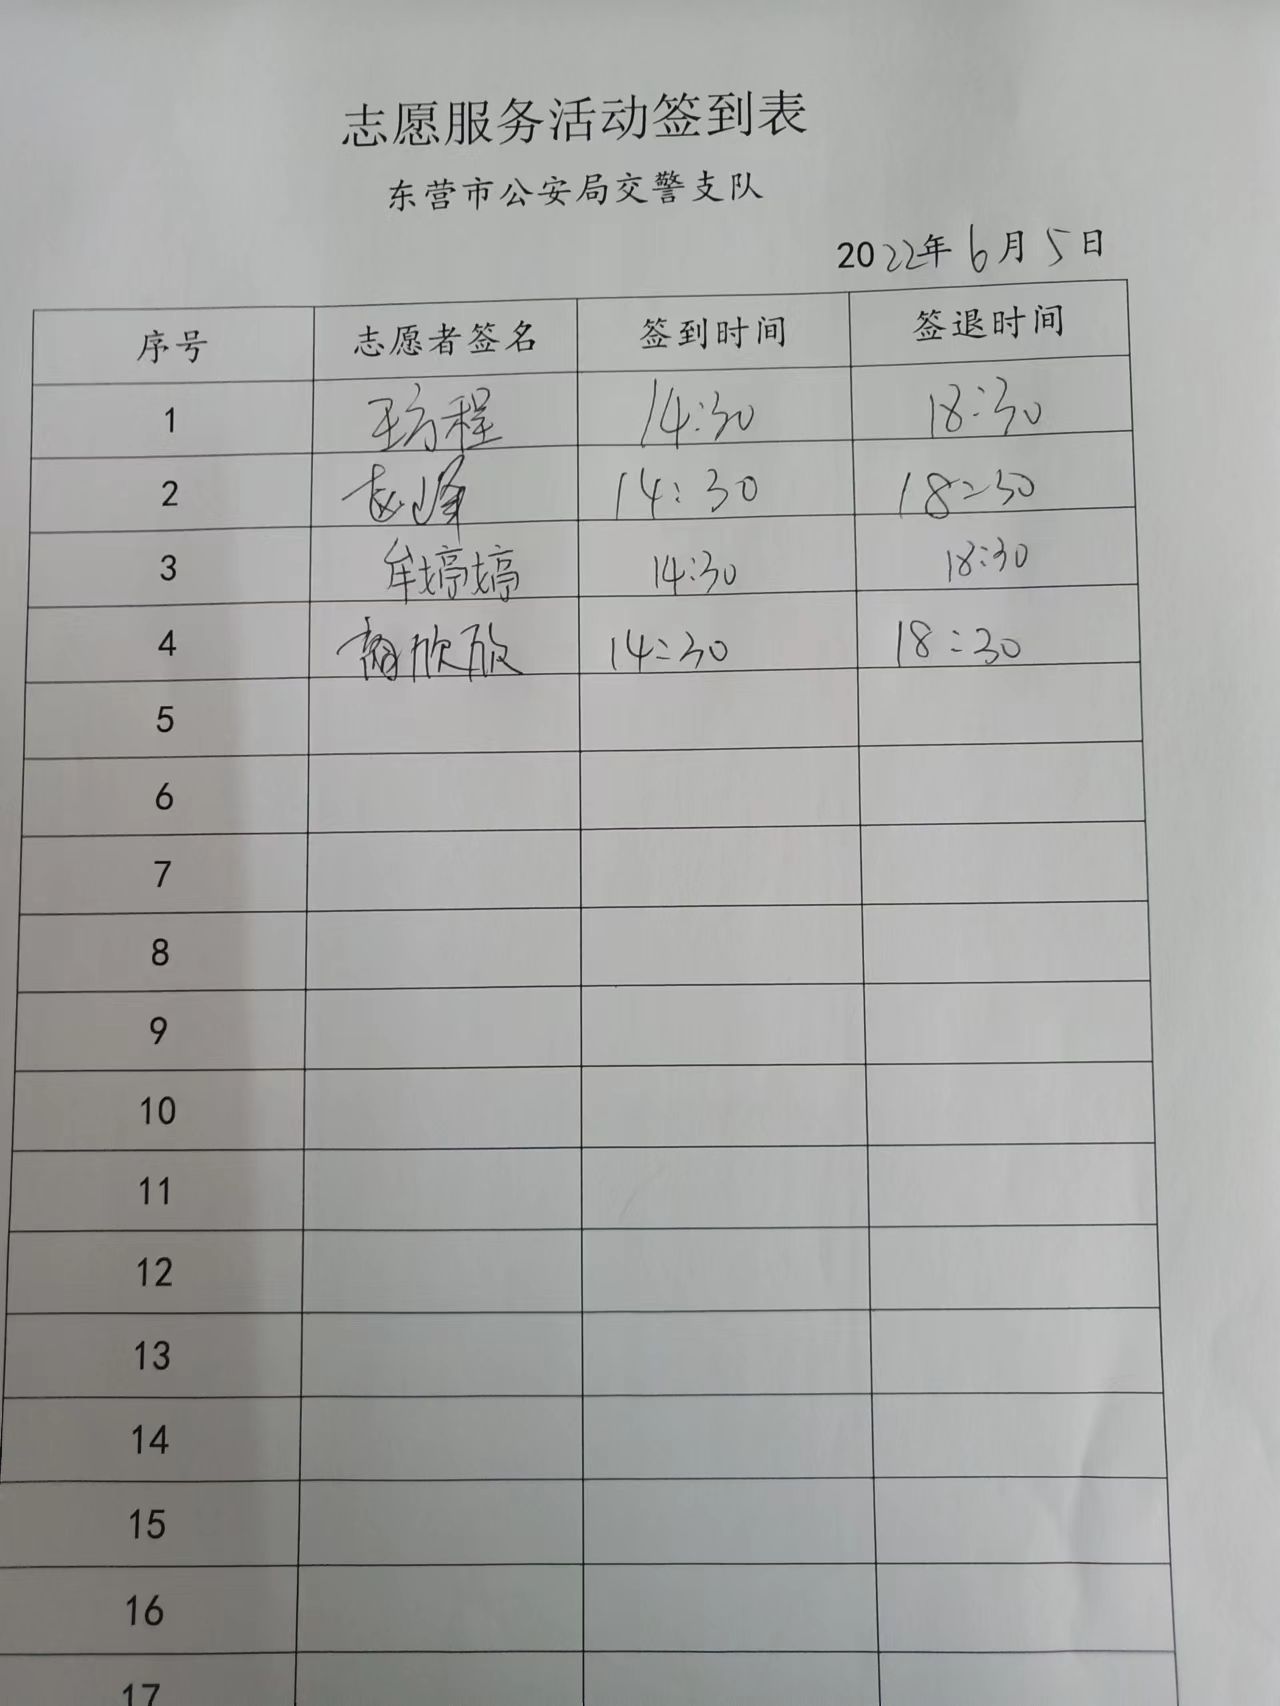 志愿服务活动签到表
东营市公安局交警支队
2022年6月5日
序号 志愿者签名 签到时间 签退时间
1 王方程 14:30 18:30
2 赵峰 14:30 18:30
3 牟婷婷 14:30 18:30
4 14:30 18:30
5
6
7
8
9
10
11
12
13
14
15
16
17